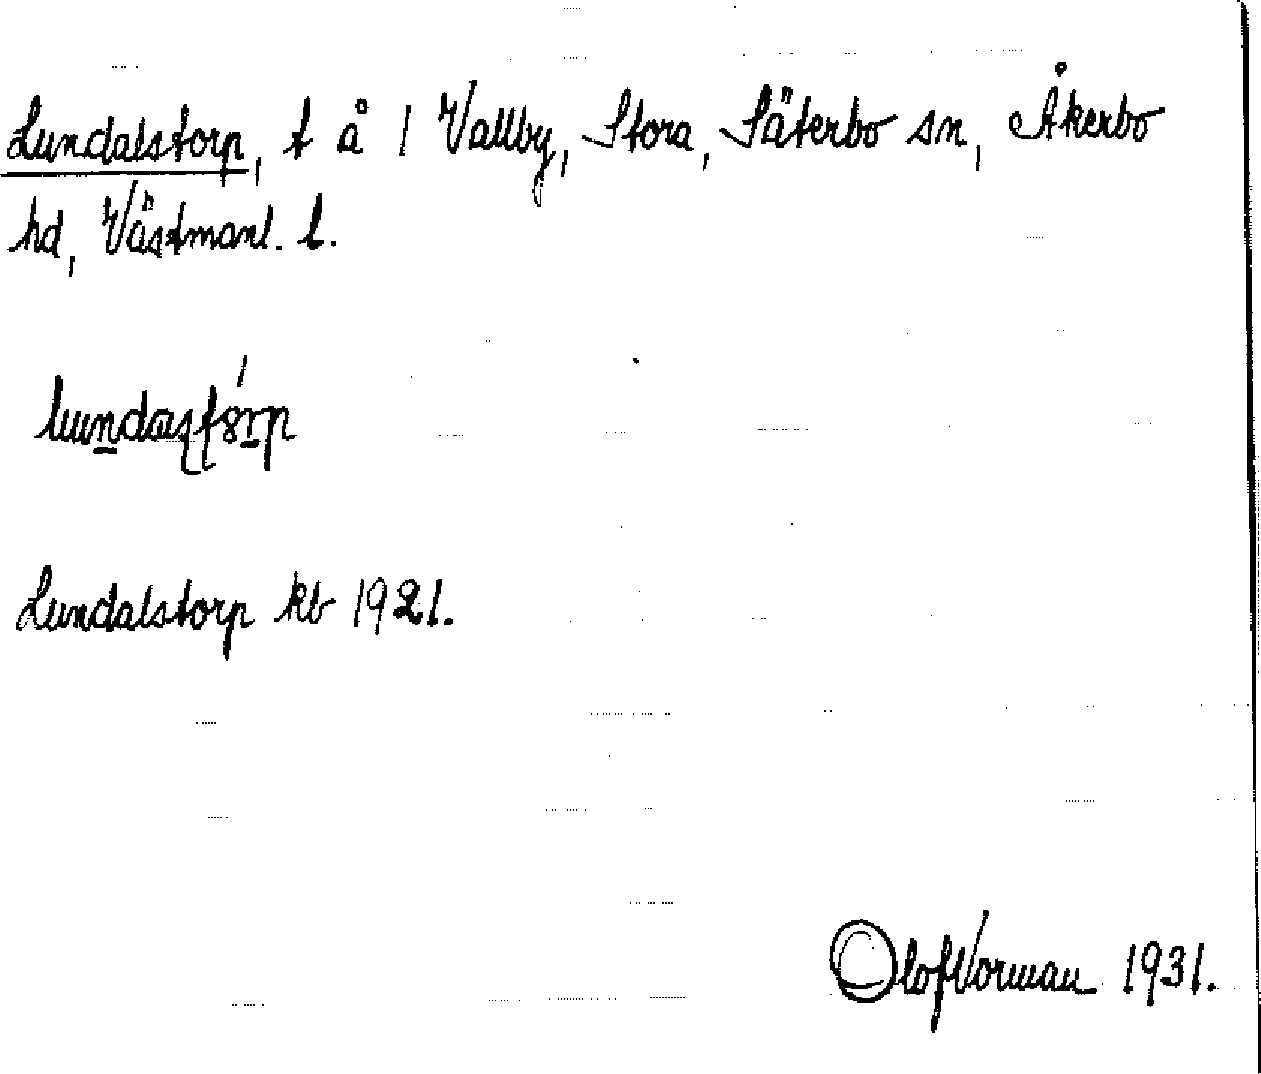 Lundalstorp, t å 1 Vallby, Stora, Säterbo sn, Åkerbo
hd, Västmanl. l.
Lundalstorp kb 1921.
Olof Vorman 1931.